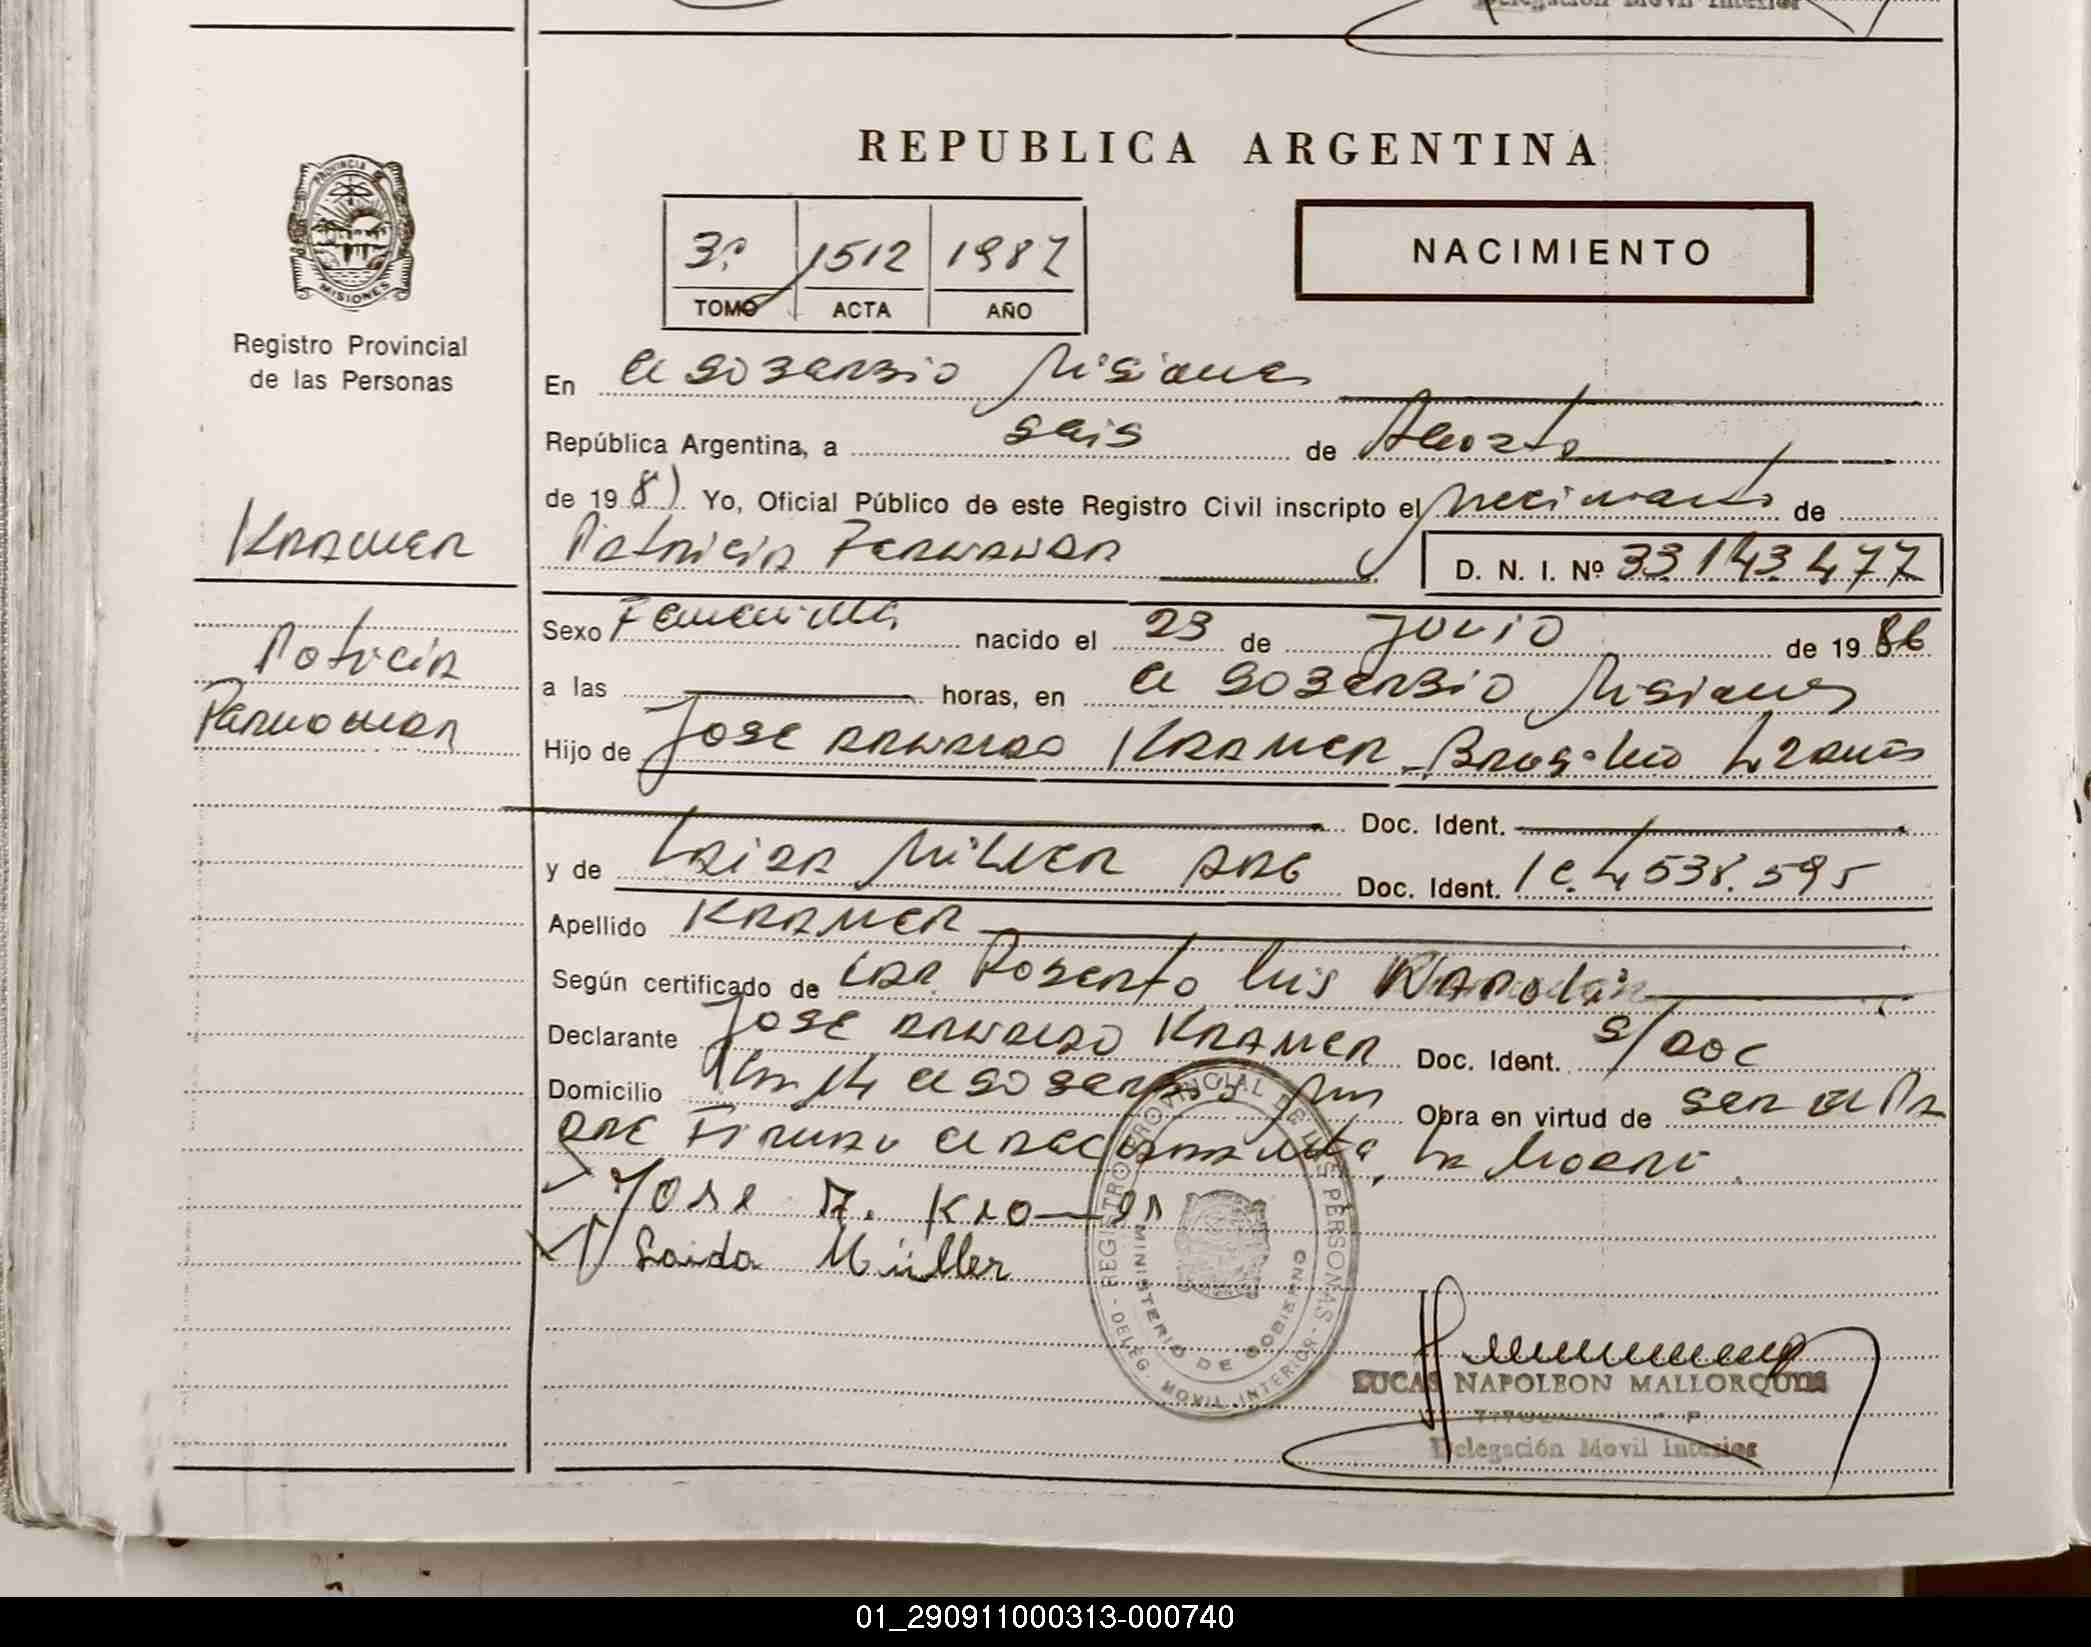 Delegación Movil Interior
REPUBLICA ARGENTINA
PROVINCIA DE
MISIONES
Registro Provincial
de las Personas
3º 1512 1987
TOMO ACTA AÑO
NACIMIENTO
En El Soberbio Misiones
República Argentina, a seis de Agosto
de 1987 Yo, Oficial Público de este Registro Civil inscripto el Nacimiento de
KRAMER
Patricia D. N. I. Nº 33.143.477
Sexo Femenino nacido el 23 de Julio de 1986
Patricia
a las horas, en El Soberbio Misiones
Hijo de Jose KRAMER
Doc. Ident.
y de Doc. Ident. 4.538.595
Apellido KRAMER
Según certificado de Roberto Luis
Declarante Jose KRAMER Doc. Ident. S/Doc
Domicilio El Soberbio Mnes Obra en virtud de ser el Pa
dre Firman el declarante La Madre
Jose A. Kramer
Saida Müller
REGISTRO PROVINCIAL DE LAS PERSONAS - DELEG. MOVIL INTERIOR -
MINISTERIO DE GOBIERNO
LUCAS NAPOLEON MALLORQUIN
Delegación Movil Interior
01_290911000313-000740